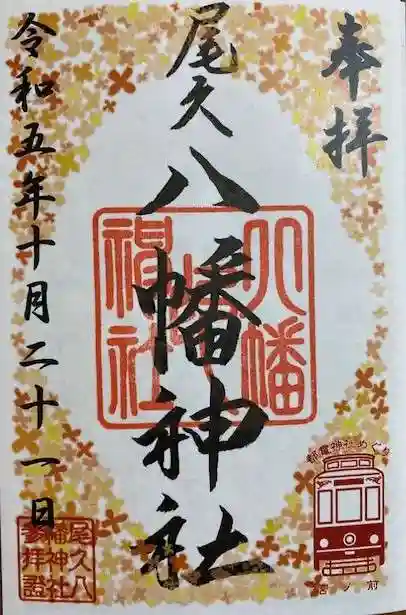 奉拝
尾久
八幡神社
令和五年十月二十一日
八幡
神社
都電神社めぐり
宮ノ前
尾久八
幡神社
参拝證